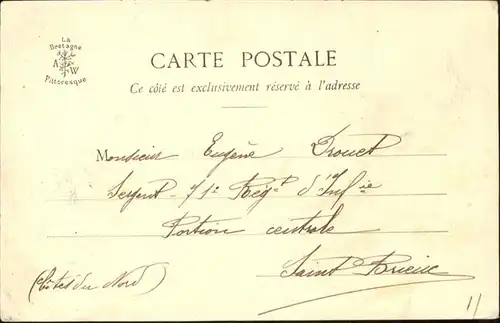 La
Bretagne
A W
Pittoresque
CARTE POSTALE
Ce côté est exclusivement réservé à l'adresse
Monsieur Eugène Drouet
Sergent - 71e Régt d'Inf.ie
Portion centrale
Saint Brieuc
(Côtes du Nord)